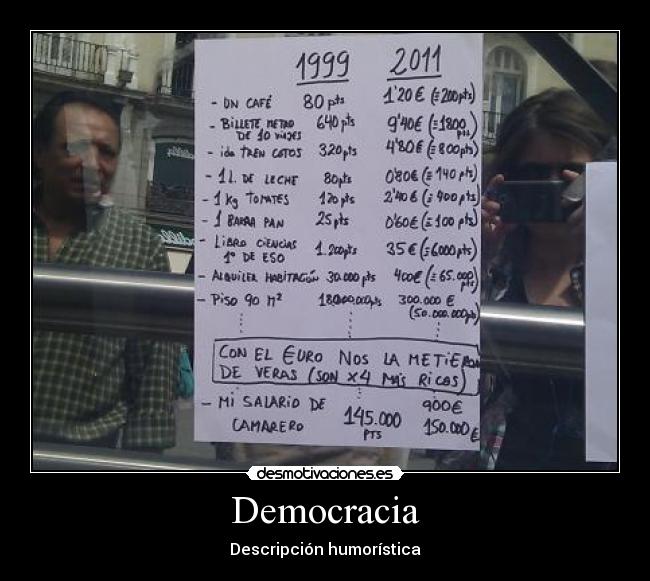 1999 2011
- UN CAFÉ 80 pts 1'20 € (= 200 pts)
- BILLETE METRO 640 pts 9'40€ (= 1800 pts)
DE 10 VIAJES
- ida TREN COTOS 320 pts 4'80€ (= 800 pts)
- 1 L. DE LECHE 80 pts 0'80€ (= 140 pts)
- 1 Kg TOMATES 120 pts 2'40€ (= 400 pts)
- 1 BARRA PAN 25 pts 0'60€ (= 100 pts)
- LIBRO CIENCIAS 1.200 pts 35€ (= 6000 pts)
1º DE ESO
- ALQUILER HABITACIÓN 30.000 pts 400€ (= 65.000 pts)
- PISO 90 M² 18.000.000 pts 300.000 €
(50.000.000 pts)
CON EL €URO NOS LA METIERON
DE VERAS (SON x4 MÁS RICOS)
- MI SALARIO DE 145.000 900€
CAMARERO PTS 150.000 €
desmotivaciones.es
Democracia
Descripción humorística